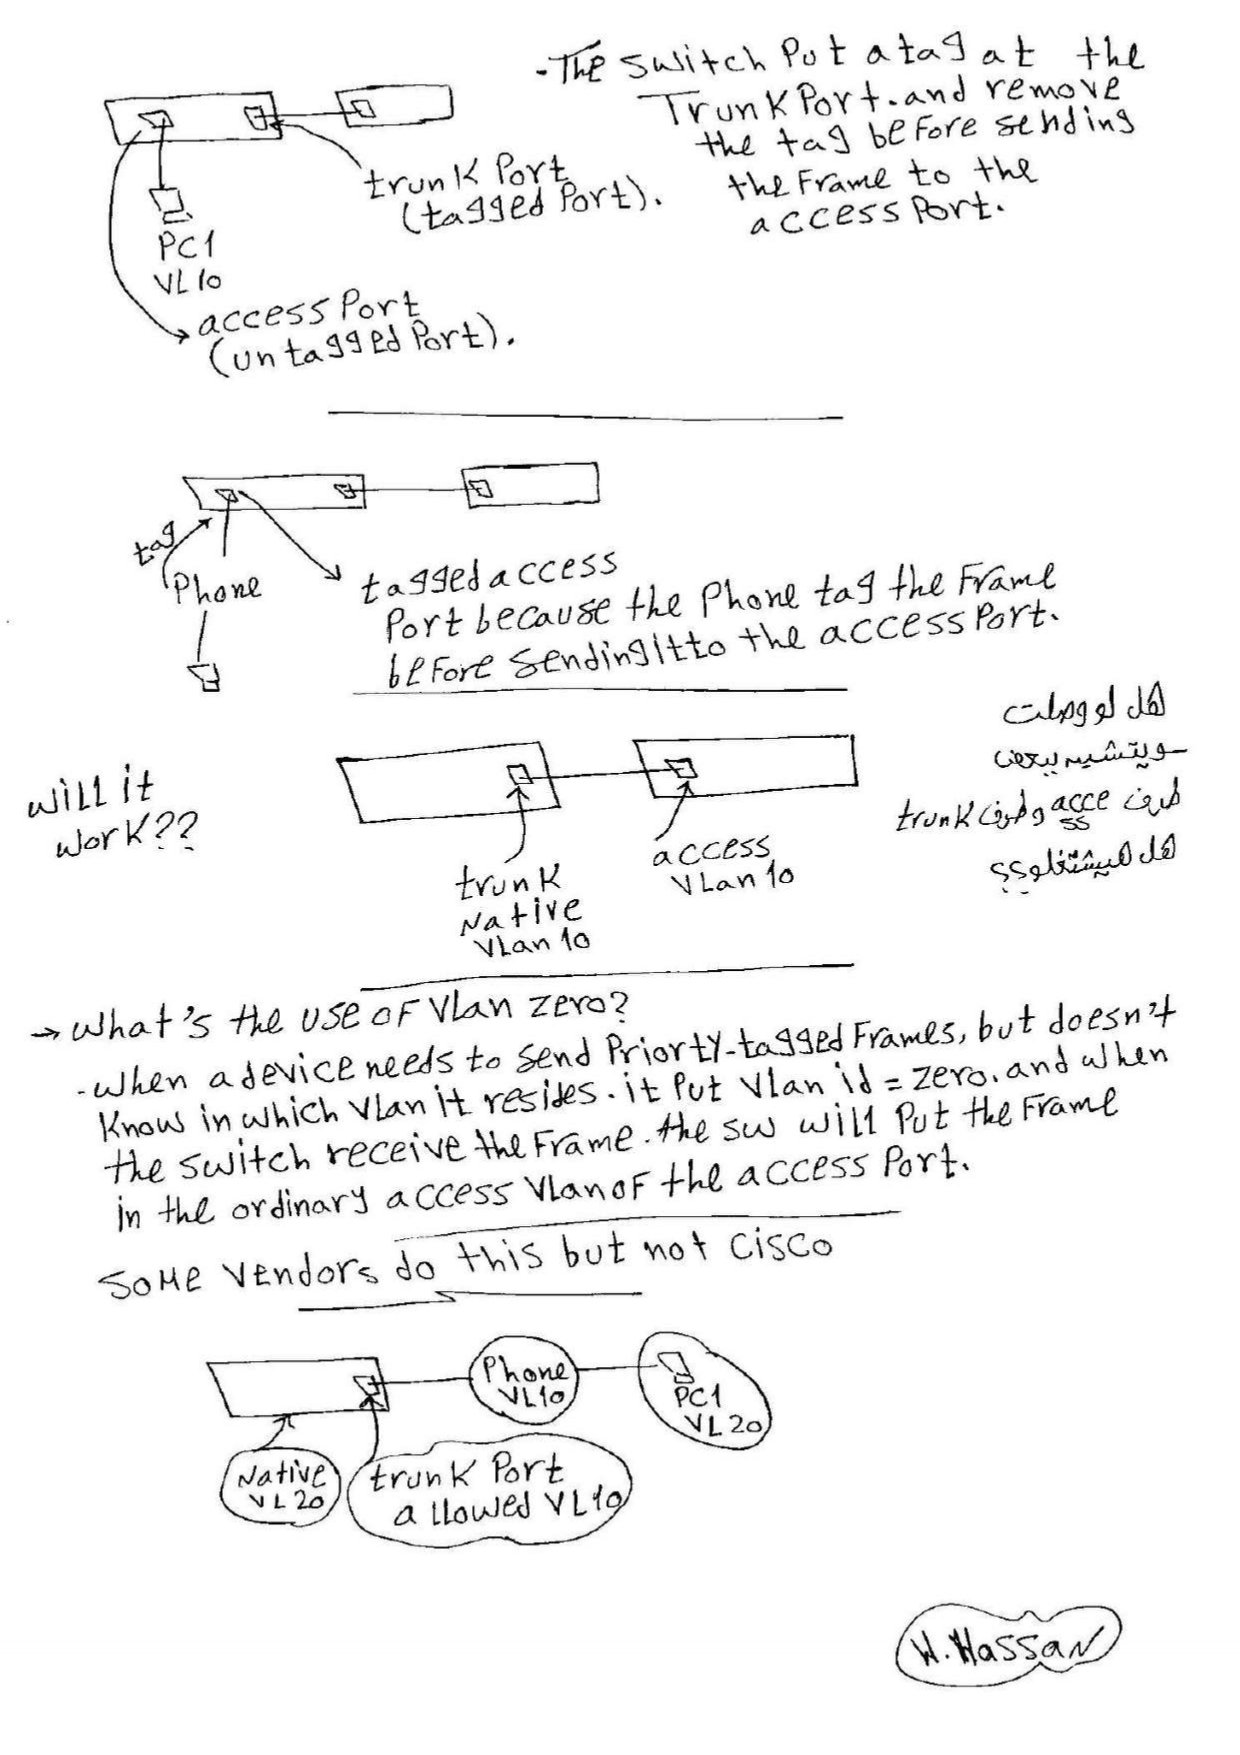 -The switch Put a tag at the
Trunk Port. and remove
the tag before sending
the Frame to the
access Port.
trunk Port
(tagged Port).
PC1
VL10
access Port
(untagged Port).
tag
Phone
tagged access
Port because the Phone tag the Frame
before sending it to the access Port.
will it
work??
trunk
Native
Vlan 10
access
Vlan 10
هل لو وصلت
سويتشين ببعض
طرف access وطرف trunk
هل هيشتغلو؟؟
→ what's the use of Vlan zero?
-when a device needs to send Priorty-tagged Frames, but doesn't
know in which Vlan it resides. it Put Vlan id = zero. and when
the switch receive the Frame. the sw will Put the Frame
in the ordinary access Vlan of the access Port.
Some Vendors do this but not Cisco
Phone
VL10
PC1
VL20
Native
VL20
trunk Port
allowed VL10
W. Hassan